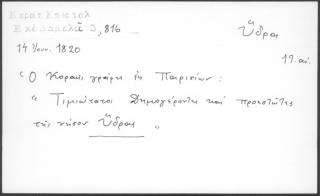 Κοραή Επιστολ
Εκδ Δαμαλά 3, 816
Ὕδρα
14 Ιουν. 1820
19. αι.
"Ο Κοραής γράφει ἐκ Παρισίων :
" Τιμιώτατοι Δημογέροντες καὶ προεστῶτες
τῆς νήσου Ὕδρας "